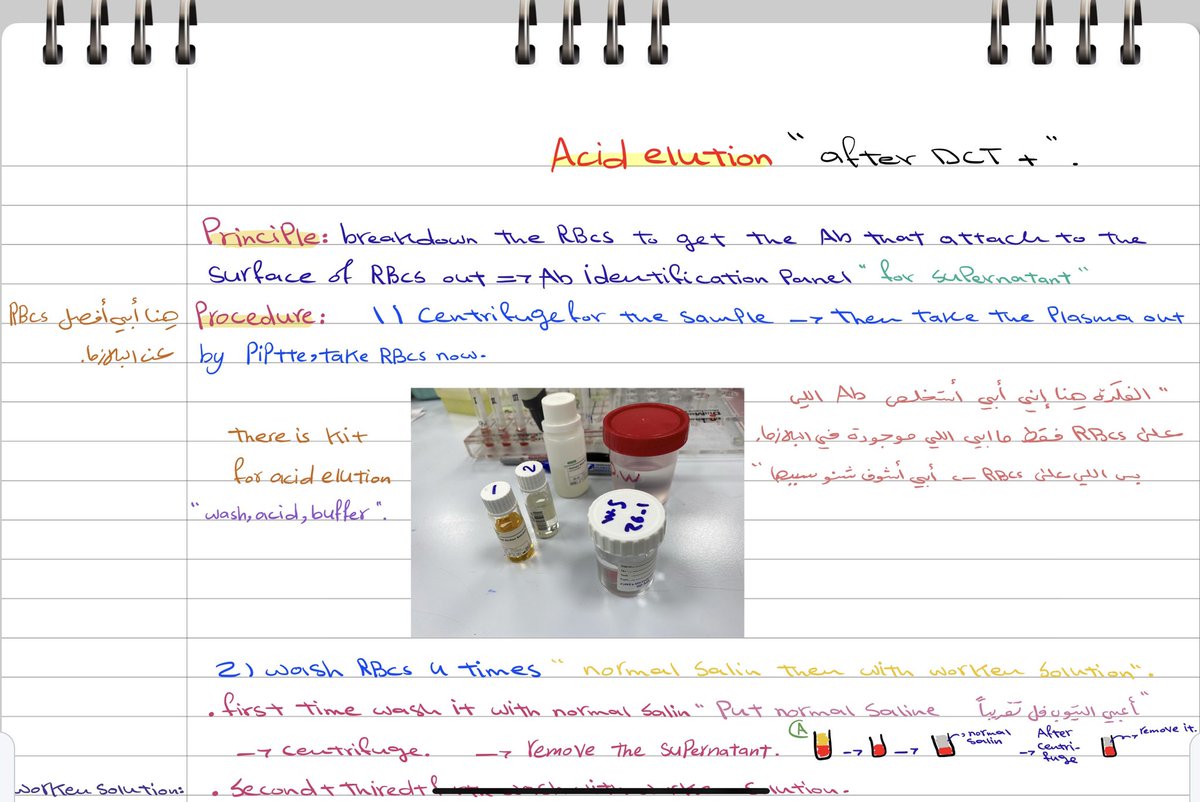 Acid elution “after DCT +”.
Principle: breakdown the RBcs to get the Ab that attach to the
surface of RBcs out => Ab identification Panel “for suPernatant”
هنا أبي أفصل RBcs
عن البلازما.
Procedure: 1) centrifuge for the sample → then take the Plasma out
by PiPtte, take RBcs now.
"الفكرة هنا إني أبي أستخلص Ab اللي
على RBcs فقط ما ابي اللي موجودة في البلازما.
بس اللي على RBcs → أبي أشوف شنو سببها"
There is kit
for acid elution
“wash, acid, buffer”.
1
2
W
W.S
26.1
2) wash RBcs 4 times “normal salin then with worken solution”.
. first time wash it with normal salin “Put normal saline أعبي التيوب فل تقريباً”
→ centrifuge. → remove the suPernatant. A → → normal salin → After centri-fuge remove it.
worken solution:
. second + thired + solution.